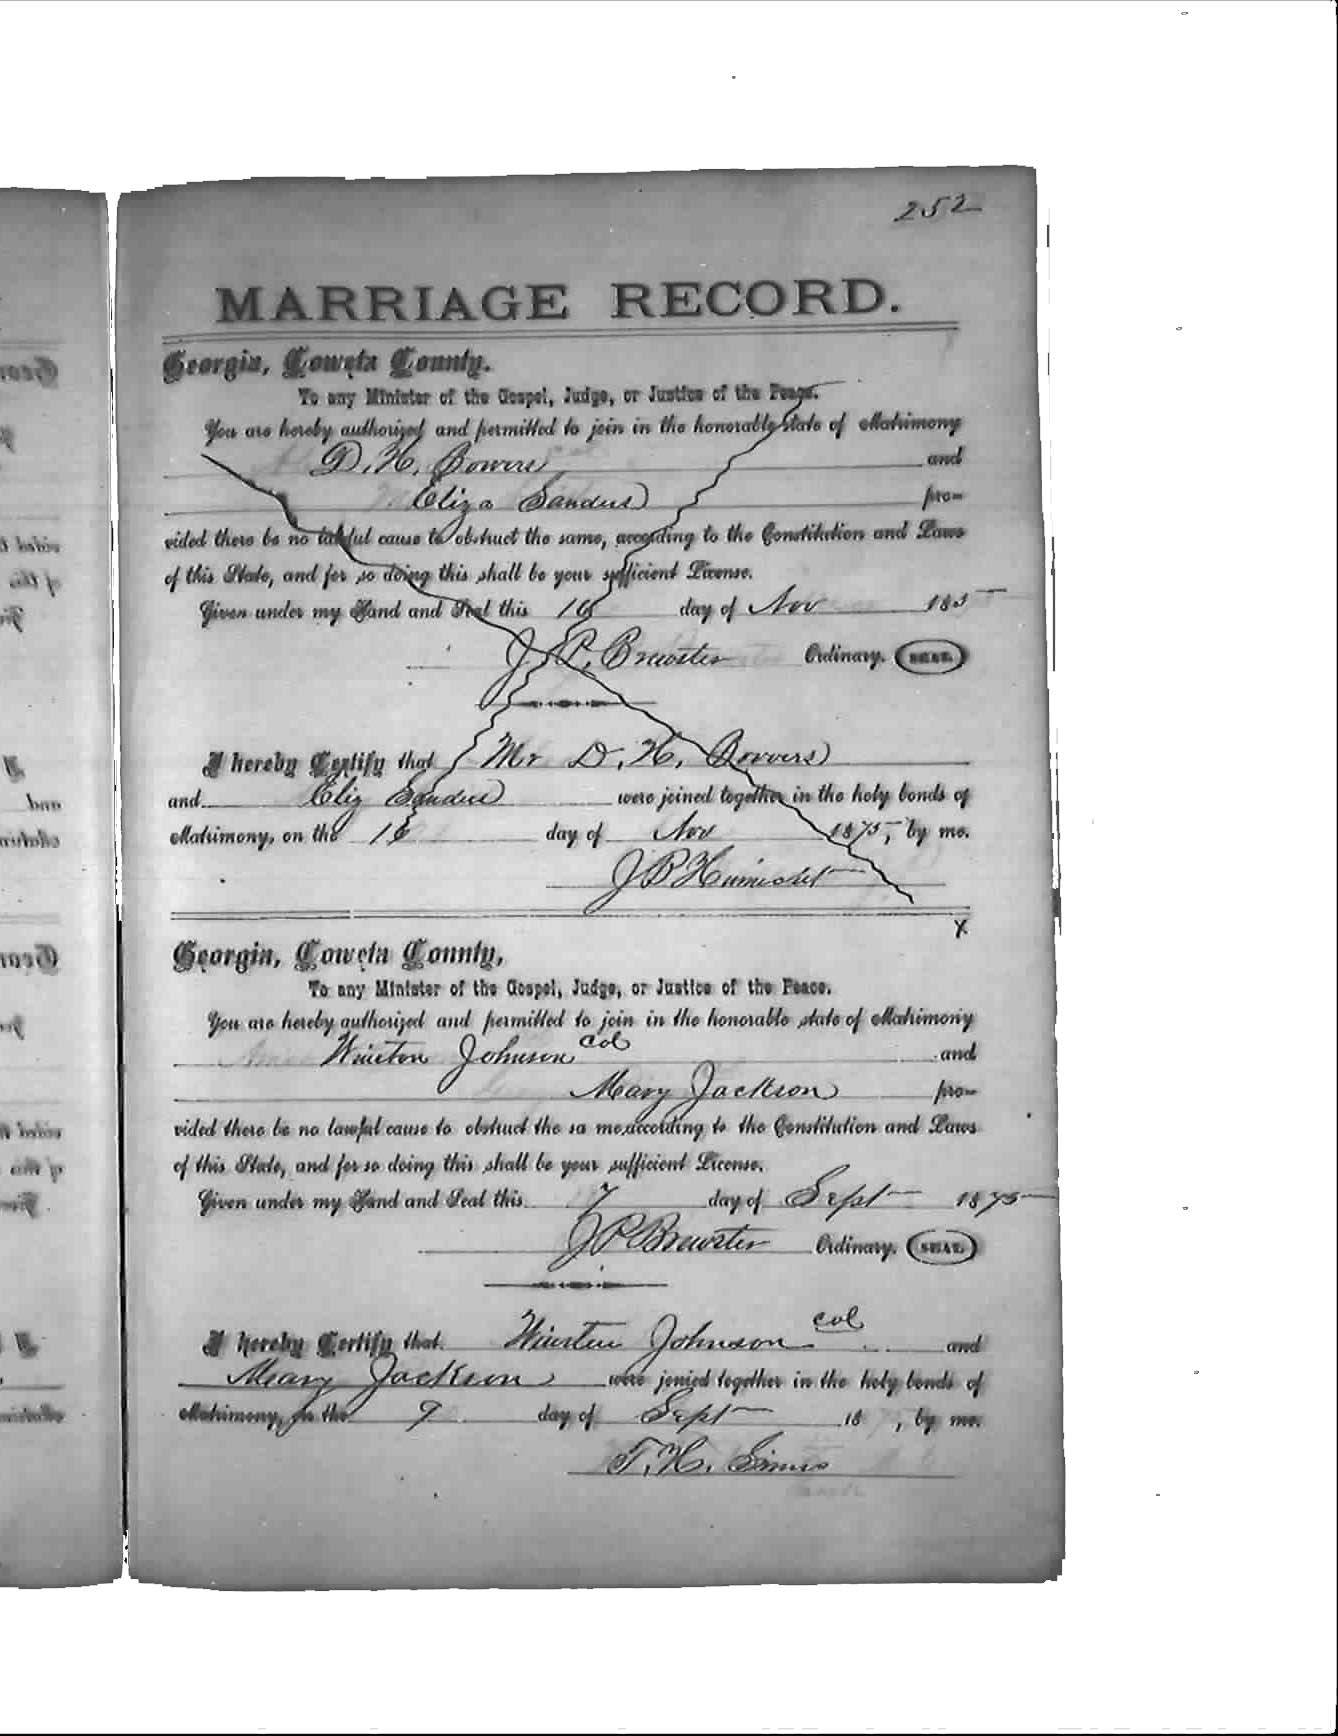 252
MARRIAGE RECORD.
Georgia, Coweta County.
To any Minister of the Gospel, Judge, or Justice of the Peace.
You are hereby authorized and permitted to join in the honorable state of Matrimony
D. H. Bowers and
Eliza Sanders pro-
vided there be no lawful cause to obstruct the same, according to the Constitution and Laws
of this State, and for so doing this shall be your sufficient License.
Given under my Hand and Seal this 16 day of Nov 185
J. P. Brewster Ordinary. SEAL.
I hereby Certify that Mr D. H. Bowers
and Eliz Sanders were joined together in the holy bonds of
Matrimony, on the 16 day of Nov 1875, by me.
J B
X
Georgia, Coweta County,
To any Minister of the Gospel, Judge, or Justice of the Peace.
You are hereby authorized and permitted to join in the honorable state of Matrimony
Winston Johnson col and
Mary Jackson pro-
vided there be no lawful cause to obstruct the sa me, according to the Constitution and Laws
of this State, and for so doing this shall be your sufficient License.
Given under my Hand and Seal this 7 day of Sept 1875
J P Brewster Ordinary. SEAL.
I hereby Certify that Winston Johnson col and
Mary Jackson were jonied together in the holy bonds of
Matrimony, on the 9 day of Sept 18 , by me.
T. H. Simms